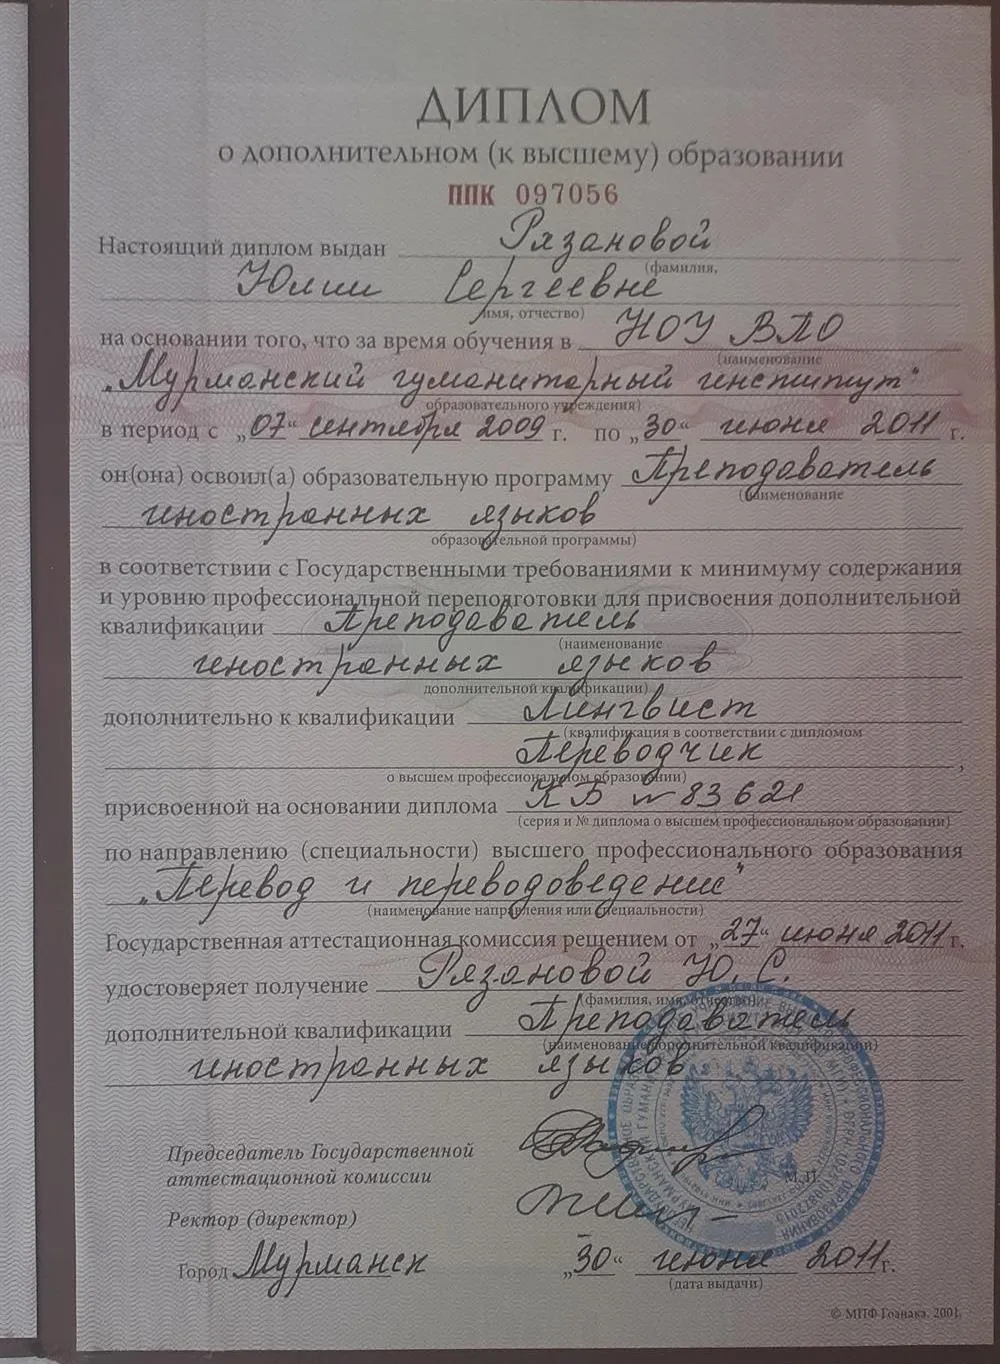 ДИПЛОМ
о дополнительном (к высшему) образовании
ППК 097056
Настоящий диплом выдан Рязановой
(фамилия,
Юлии Сергеевне
имя, отчество)
на основании того, что за время обучения в НОУ ВПО
(наименование
„Мурманский гуманитарный институт"
образовательного учреждения)
в период с „07“ сентября 2009 г. по „30“ июня 2011 г.
он(она) освоил(а) образовательную программу Преподаватель
(наименование
иностранных языков
образовательной программы)
в соответствии с Государственными требованиями к минимуму содержания
и уровню профессиональной переподготовки для присвоения дополнительной
квалификации Преподаватель
(наименование
иностранных языков
дополнительной квалификации)
дополнительно к квалификации Лингвист
(квалификация в соответствии с дипломом
Переводчик,
о высшем профессиональном образовании)
присвоенной на основании диплома КБ № 83621
(серия и № диплома о высшем профессиональном образовании)
по направлению (специальности) высшего профессионального образования
„Перевод и переводоведение"
(наименование направления или специальности)
Государственная аттестационная комиссия решением от „27“ июня 2011 г.
удостоверяет получение Рязановой Ю. С.
(фамилия, имя, отчество)
дополнительной квалификации Преподаватель
(наименование дополнительной квалификации)
иностранных языков
Председатель Государственной
аттестационной комиссии
М.П.
Ректор (директор)
Город Мурманск „30“ июня 2011 г.
(дата выдачи)
© МПФ Гознака. 2001.